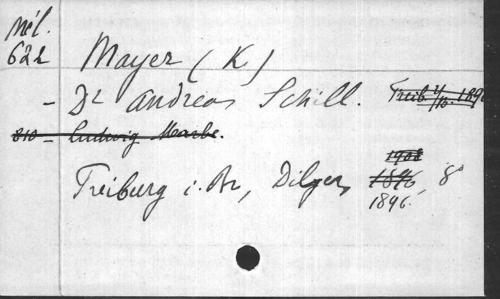 Mél.
622 Mayer (K)
- Dr Andreas Schill. Freib. 2/10. 1896
810 - Ludwig Marbe.
Freiburg i. Br, Dilger, 1901 1896 1896. 8°